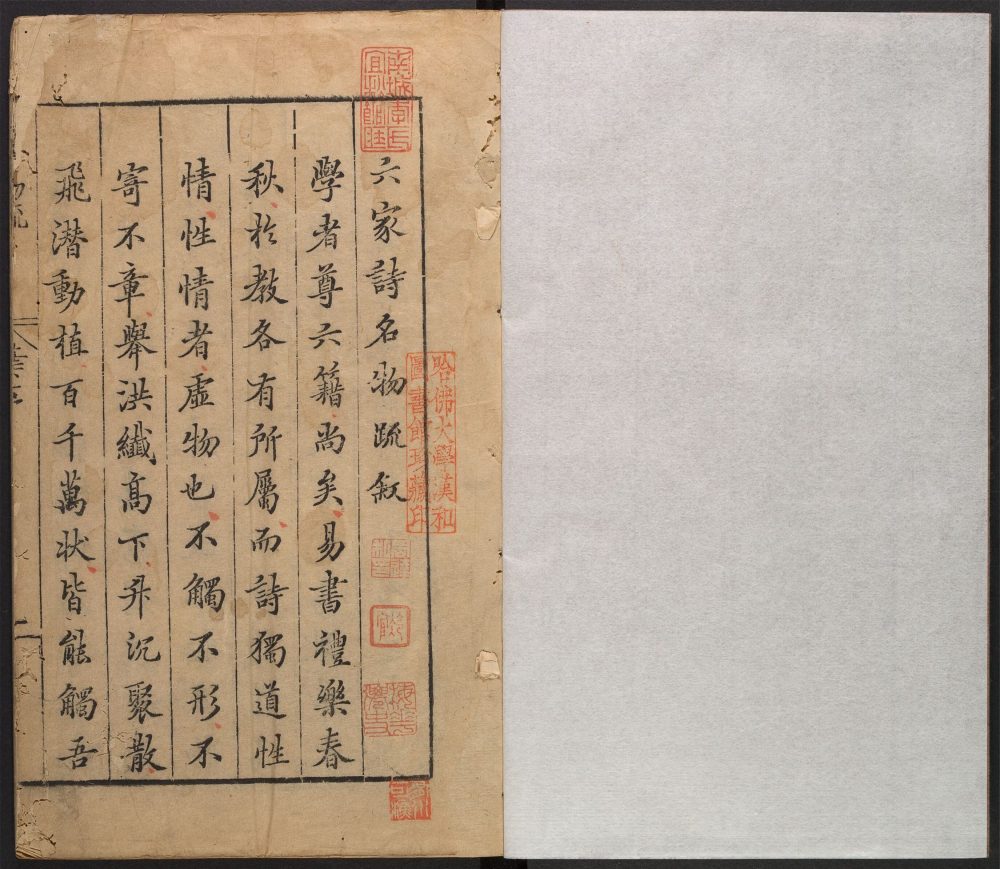 六家詩名物疏敘
學者尊六籍尚矣易書禮樂春
秋於教各有所屬而詩獨道性
情性情者虛物也不觸不形不
寄不章舉洪纖高下升沉聚散
飛潛動植百千萬狀皆能觸吾
哈佛大學漢和
圖書館珍藏印
南城李氏